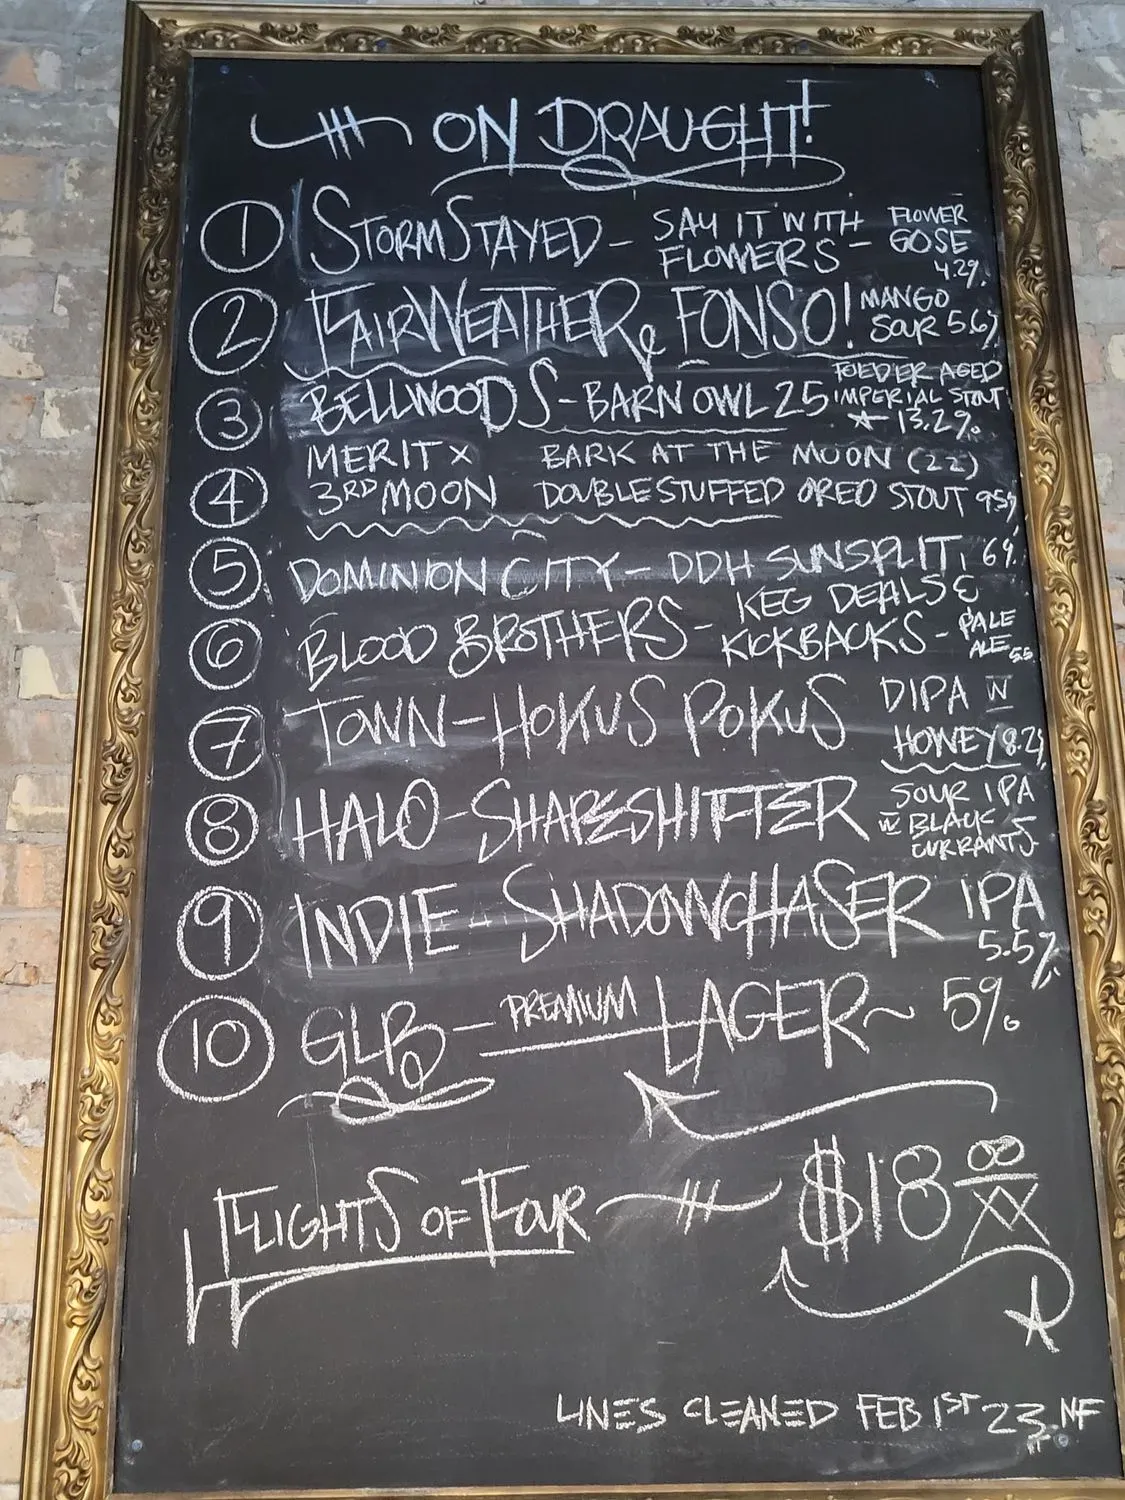 ON DRAUGHT!
1 STORMSTAYED - SAY IT WITH FLOWERS - FLOWER GOSE 4.2%
2 FAIRWEATHER & FONSO! MANGO SOUR 5.6%
3 BELLWOODS - BARN OWL 25 FOEDER AGED IMPERIAL STOUT 13.2%
4 MERIT X 3RD MOON BARK AT THE MOON (22) DOUBLE STUFFED OREO STOUT 9.5%
5 DOMINION CITY - DDH SUNSPLIT, 6%
6 BLOOD BROTHERS - KEG DEALS & KICKBACKS - PALE ALE 5.5
7 TOWN - HOKUS POKUS DIPA W HONEY 8.2%
8 HALO - SHAPESHIFTER SOUR IPA W BLACK CURRANTS
9 INDIE - SHADOWCHASER IPA 5.5%
10 GLB - PREMIUM LAGER ~ 5%
FLIGHTS OF FOUR $18 00/XX
LINES CLEANED FEB 1ST 23. NF